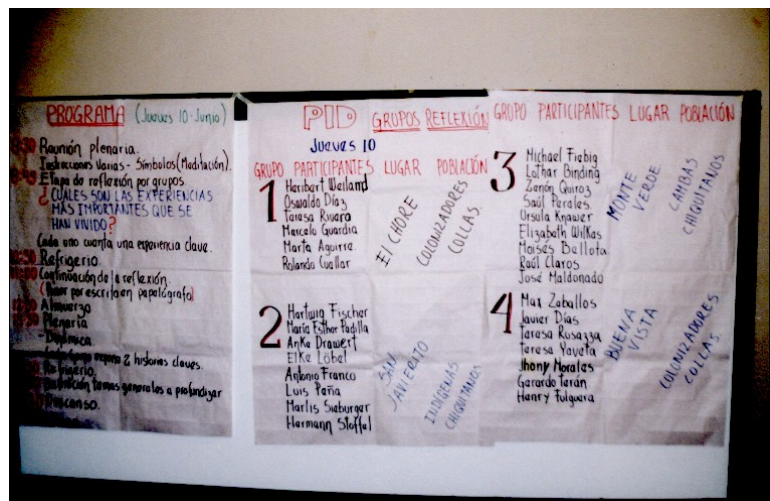 PROGRAMA (Jueves 10-Junio)
Reunión plenaria.
Instrucciones Varias - Símbolos (Meditación).
Etapa de reflexión por grupos.
¿CUÁLES SON LAS EXPERIENCIAS
MÁS IMPORTANTES QUE SE
HAN VIVIDO?
Cada uno cuenta una experiencia clave.
Refrigerio.
Continuación de la reflexión.
por escrito en papelógrafo)
Almuerzo
Plenaria
- Dinámica
2 historias claves.
Refrigerio.
temas generales a profundizar
Descanso.
PID GRUPOS REFLEXIÓN
Jueves 10
GRUPO PARTICIPANTES LUGAR POBLACIÓN
1
Heribert Weiland
Oswaldo Díaz
Teresa Rivero
Marcelo Guardia
Marta Aguirre.
Rolando Cuellar
El CHORE
COLONIZADORES
COLLAS.
2
Hartwig Fischer
María Esther Padilla
Anke Drawert
Elke Löbel
Antonio Franco
Luis Peña
Marlis Sieburger
Hermann Stoffel
SAN
JAVIERITO
INDÍGENAS
CHIQUITANOS
GRUPO PARTICIPANTES LUGAR POBLACIÓN
3
Michael Fiebig
Lothar Binding
Zenón Quiroz
Saúl Perales
Ursula Knawer
Elizabeth Wilkas
Moisés Bellota
Raúl Claros
José Maldonado
MONTE
VERDE
CAMBAS
CHIQUITANOS
4
Max Zeballos
Javier Días
Teresa Rosazza
Teresa Yaveta
Jhony Morales
Gerardo Terán
Henry Fulguera
BUENA
VISTA
COLONIZADORES
COLLAS.